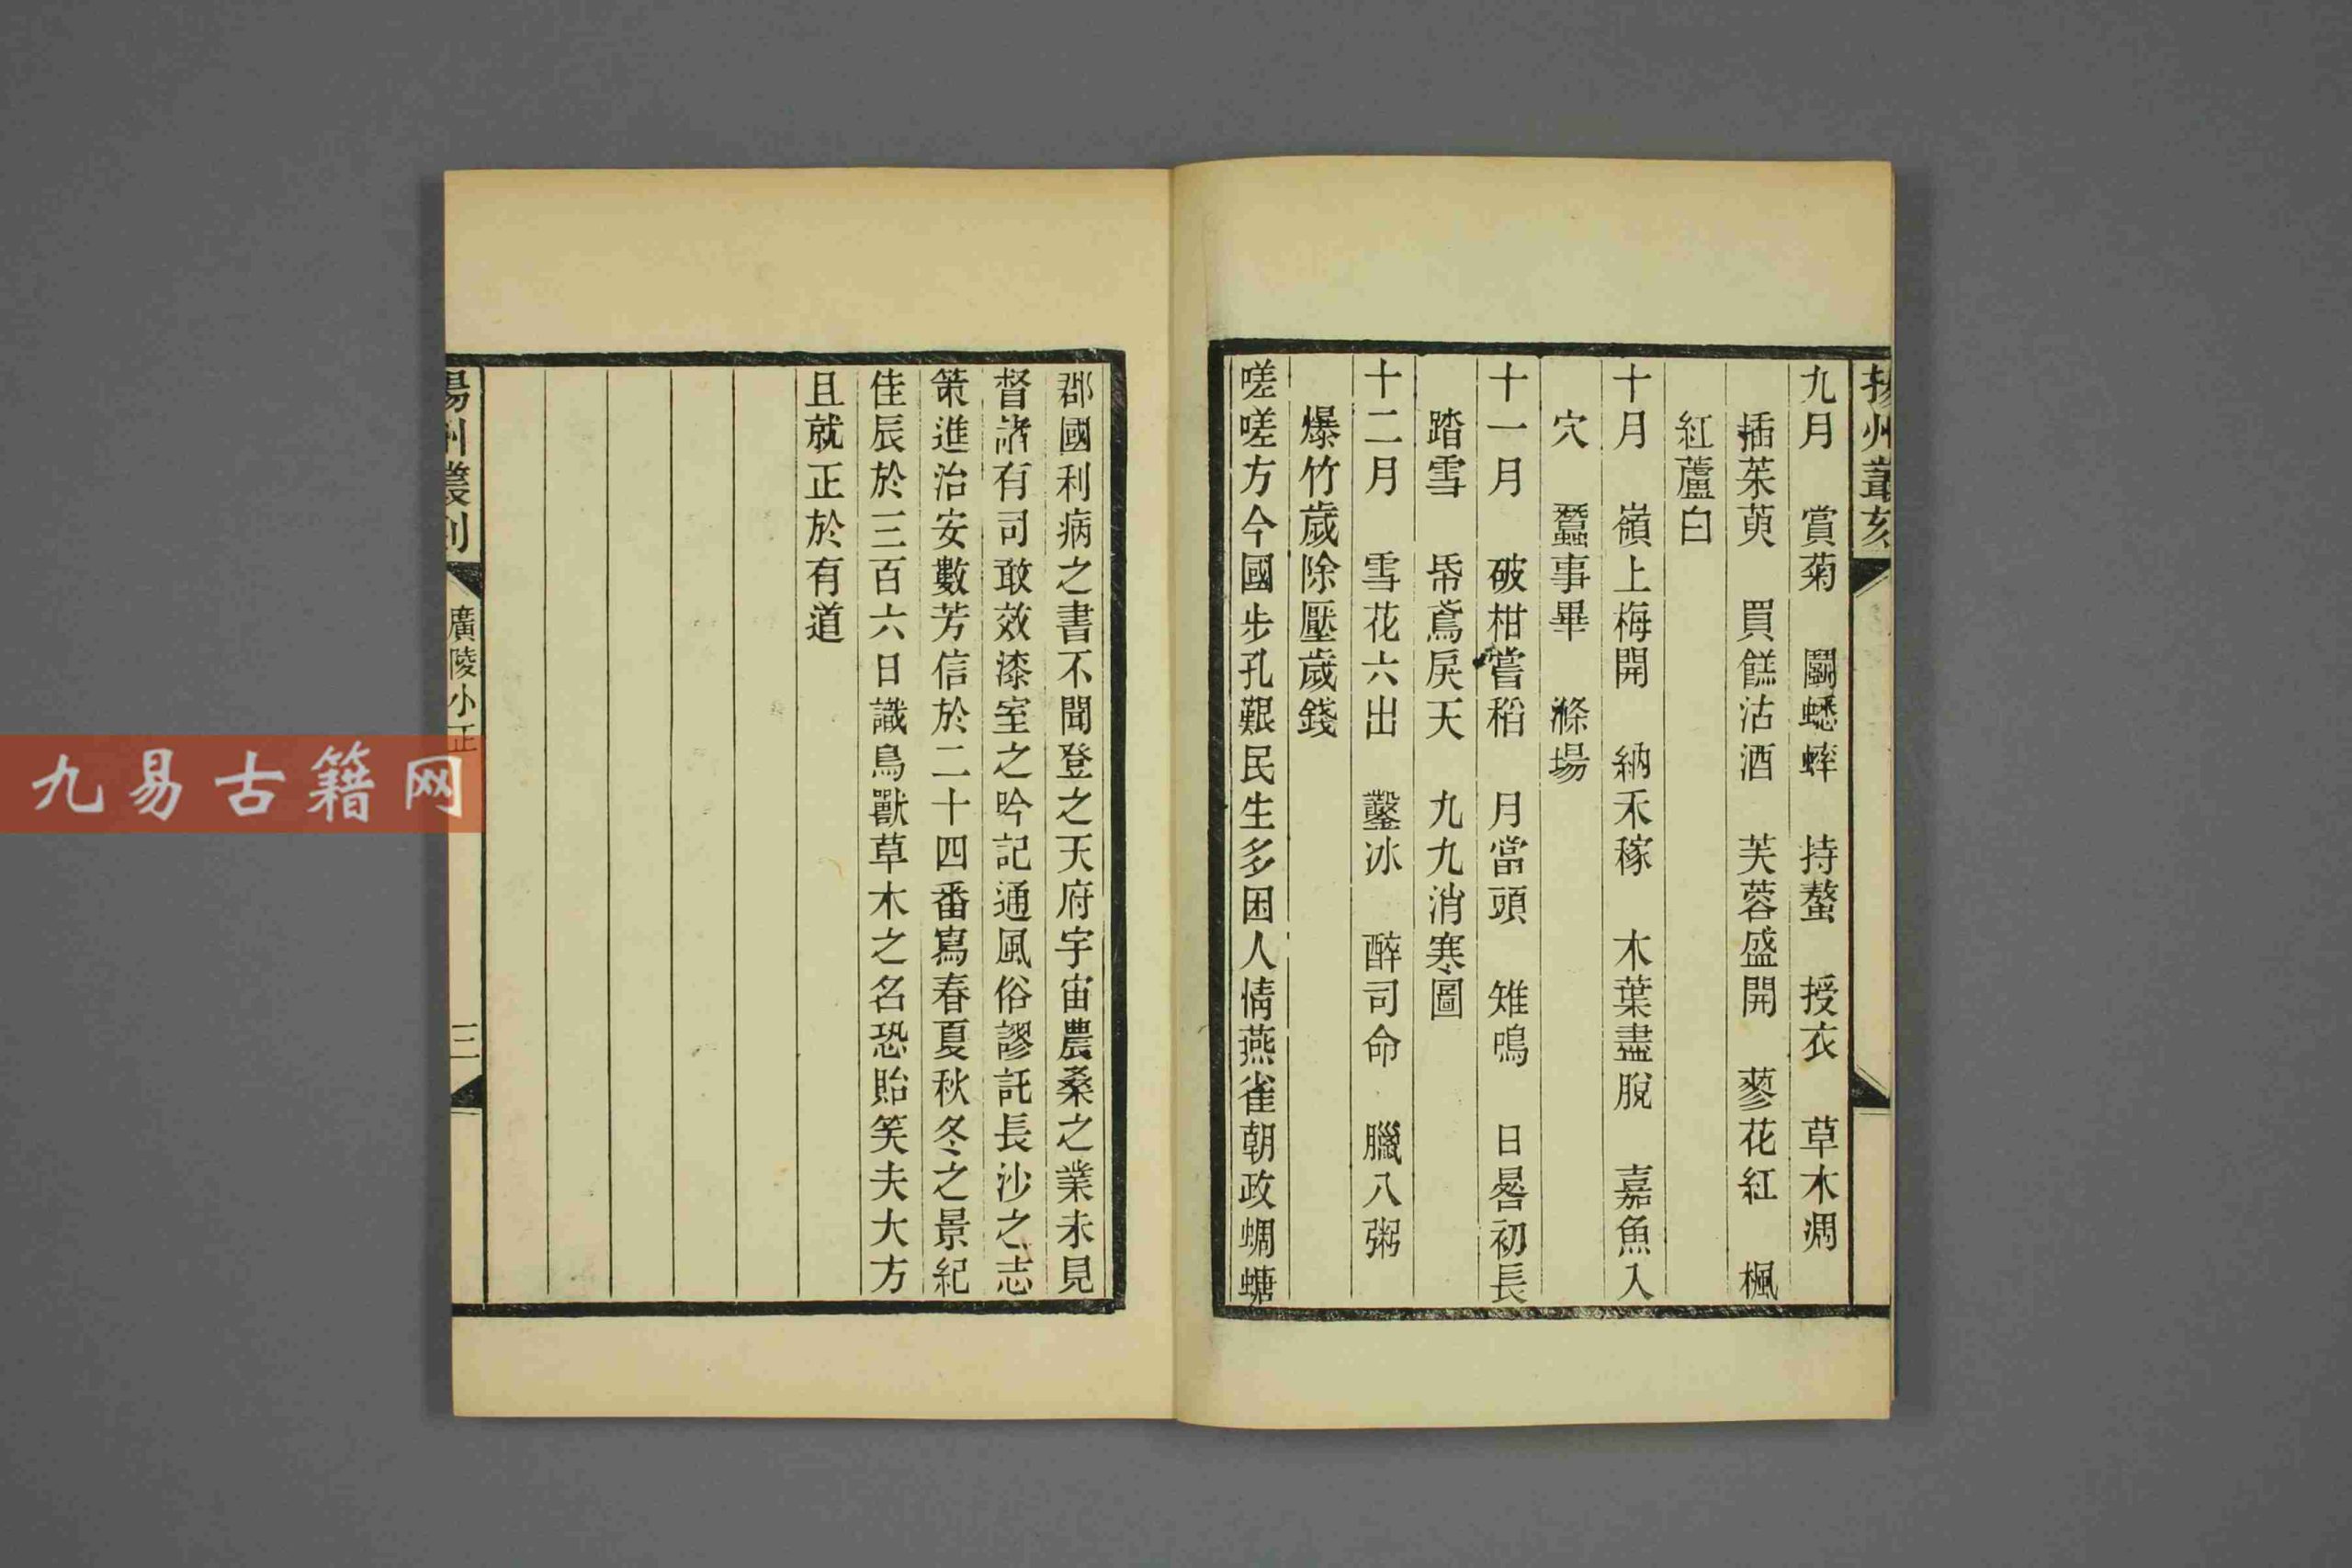 揚州叢刻
九月　賞菊　鬭蟋蟀　持螯　授衣　草木凋
插茱萸　買餻沽酒　芙蓉盛開　蓼花紅　楓
紅蘆白
十月　嶺上梅開　納禾稼　木葉盡脫　嘉魚入
穴　蠶事畢　滌場
十一月　破柑嘗稻　月當頭　雉鳴　日晷初長
踏雪　帋鳶戾天　九九消寒圖
十二月　雪花六出　鑿冰　醉司命　臘八粥
爆竹歲除壓歲錢
嗟嗟方今國步孔艱民生多困人情燕雀朝政蜩螗
郡國利病之書不聞登之天府宇宙農桑之業未見
督諸有司敢效漆室之吟記通風俗謬託長沙之志
策進治安數芳信於二十四番寫春夏秋冬之景紀
佳辰於三百六日識鳥獸草木之名恐貽笑夫大方
且就正於有道
揚州叢刻
廣陵小正
三
九易古籍网